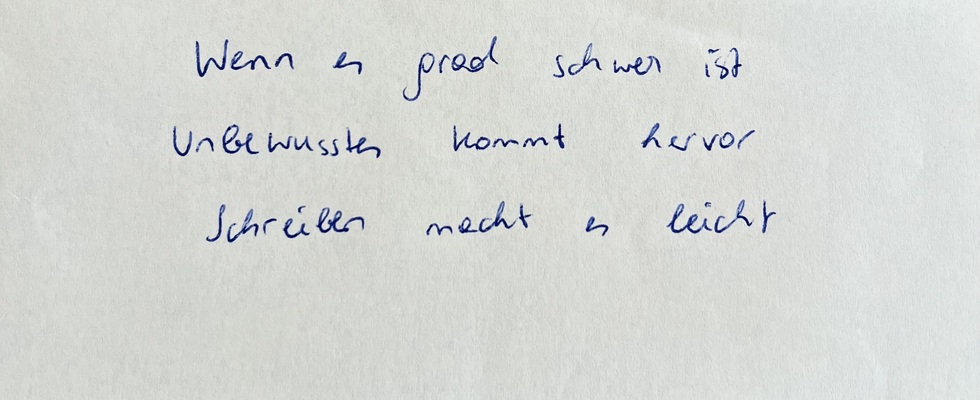 Wenn es grad schwer ist
Unbewusstes kommt hervor
Schreiben macht es leicht